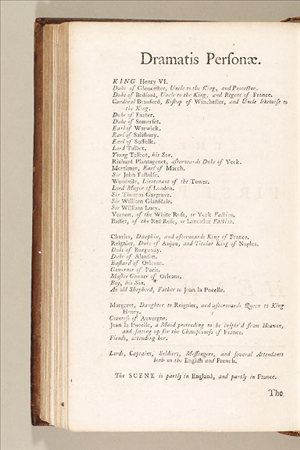 Dramatis Personæ.
KING Henry VI.
Duke of Gloucester, Uncle to the King, and Protector.
Duke of Bedford, Uncle to the King, and Regent of France.
Cardinal Beauford, Bishop of Winchester, and Uncle likewise to
the King.
Duke of Exeter.
Duke of Somerset.
Earl of Warwick.
Earl of Salisbury.
Earl of Suffolk.
Lord Talbot.
Young Talbot, his Son.
Richard Plantagenet, afterwards Duke of York.
Mortimer, Earl of March.
Sir John Fastolfe.
Woodvile, Lieutenant of the Tower.
Lord Mayor of London.
Sir Thomas Gargrave.
Sir William Glansdale.
Sir William Lucy.
Vernon, of the White Rose, or York Faction.
Basset, of the Red Rose, or Lancaster Faction.
Charles, Dauphin, and afterwards King of France.
Reignier, Duke of Anjou, and Titular King of Naples.
Duke of Burgundy.
Duke of Alanson.
Bastard of Orleans.
Governor of Paris.
Master Gunner of Orleans.
Boy, his Son.
An old Shepherd, Father to Joan la Pucelle.
Margaret, Daughter to Reignier, and afterwards Queen to King
Henry.
Countess of Auvergne.
Joan la Pucelle, a Maid pretending to be inspir'd from Heaven,
and setting up for the Championess of France.
Fiends, attending her.
Lords, Captains, Soldiers, Messengers, and several Attendants
both on the English and French.
The SCENE is partly in England, and partly in France.
The